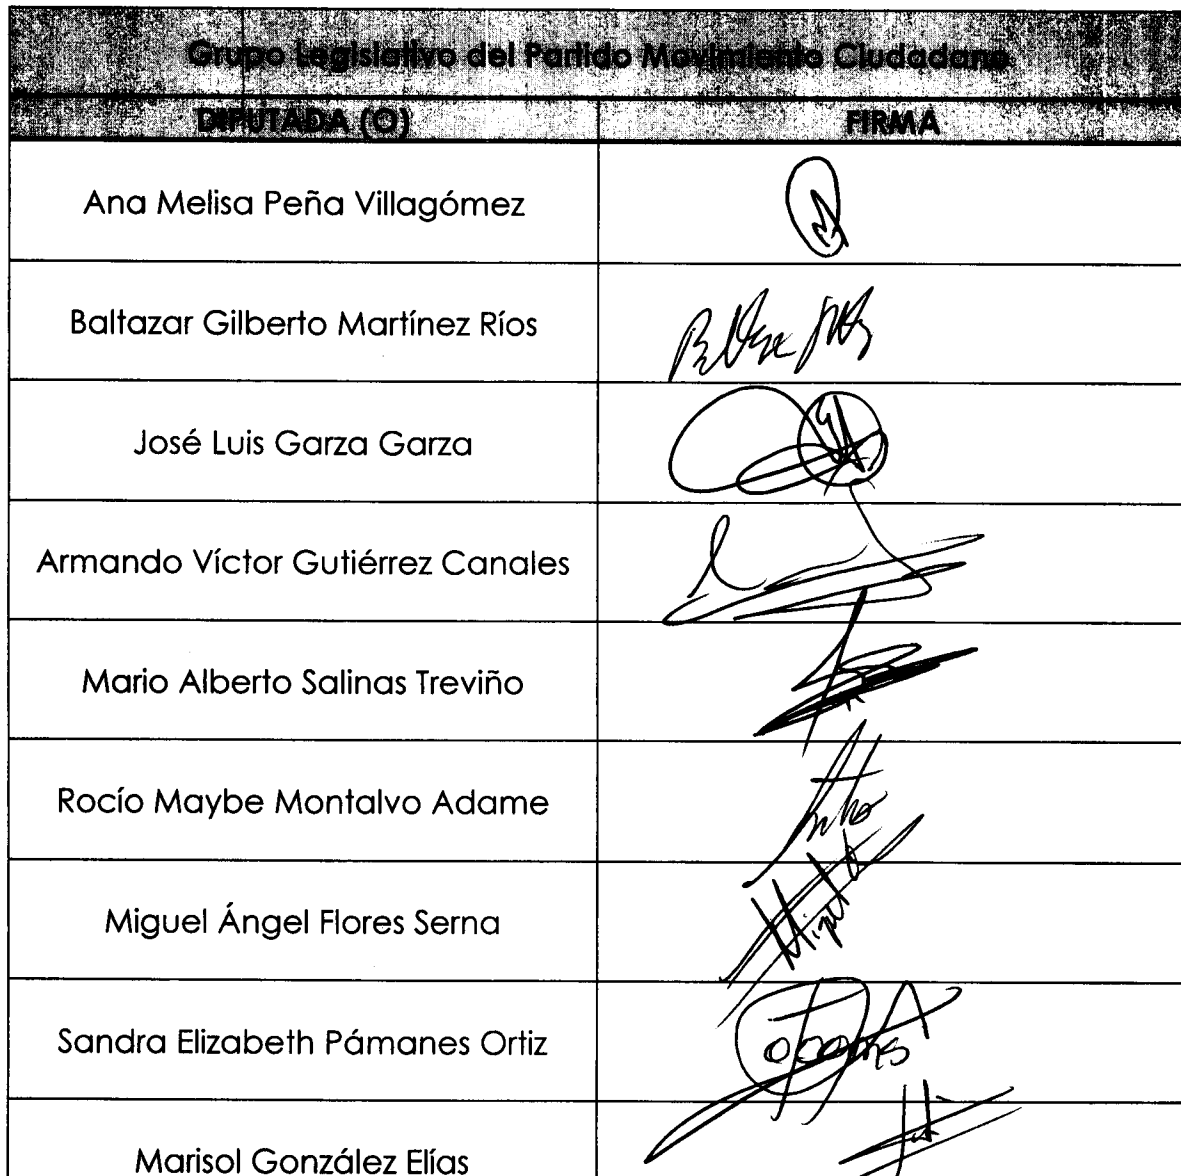 Grupo Legislativo del Partido Movimiento Ciudadano
DIPUTADA (O) FIRMA
Ana Melisa Peña Villagómez
Baltazar Gilberto Martínez Ríos
José Luis Garza Garza
Armando Víctor Gutiérrez Canales
Mario Alberto Salinas Treviño
Rocío Maybe Montalvo Adame
Miguel Ángel Flores Serna
Sandra Elizabeth Pámanes Ortiz
Marisol González Elías